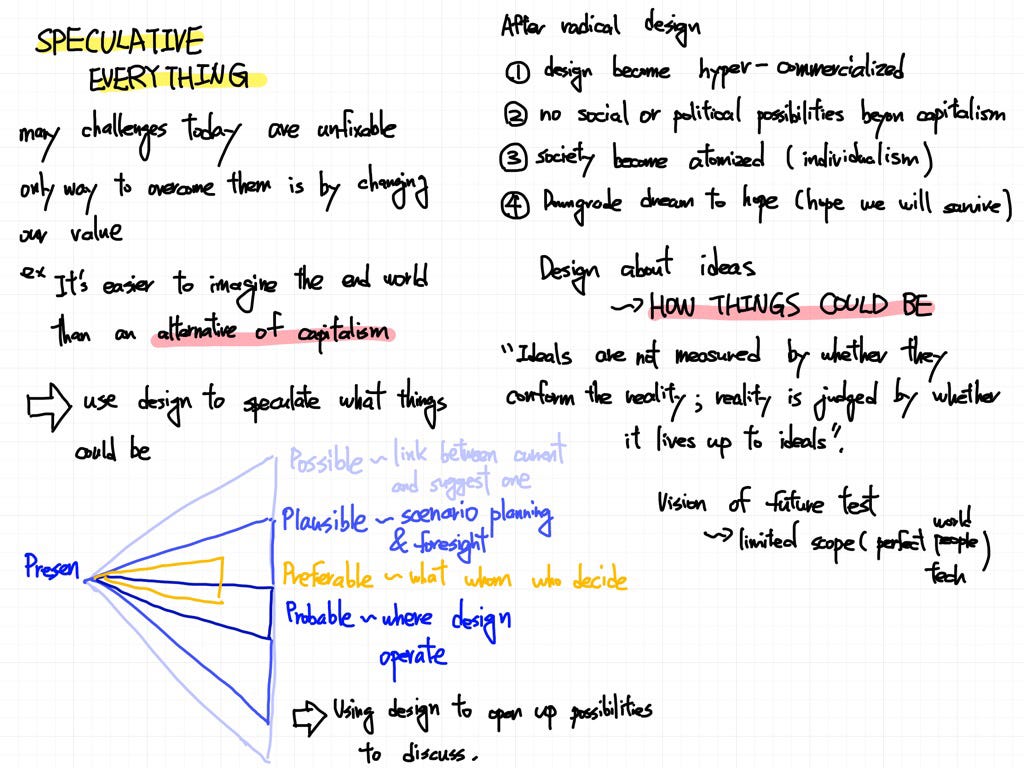 SPECULATIVE
EVERYTHING
many challenges today are unfixable
only way to overcome them is by changing
our value
ex It's easier to imagine the end world
than an alternative of capitalism
⇒ use design to speculate what things
could be
Possible ~ link between current
and suggest one
Plausible ~ scenario planning
& foresight
Presen
Preferable ~ what whom who decide
Probable ~ where design
operate
⇒ Using design to open up possibilities
to discuss.
After radical design
① design become hyper-commercialized
② no social or political possibilities beyon capitalism
③ society become atomized (individualism)
④ Downgrade dream to hope (hope we will survive)
Design about ideas
~> HOW THINGS COULD BE
"Ideals are not measured by whether they
conform the reality; reality is judged by whether
it lives up to ideals".
Vision of future test
world
~> limited scope (perfect people)
tech